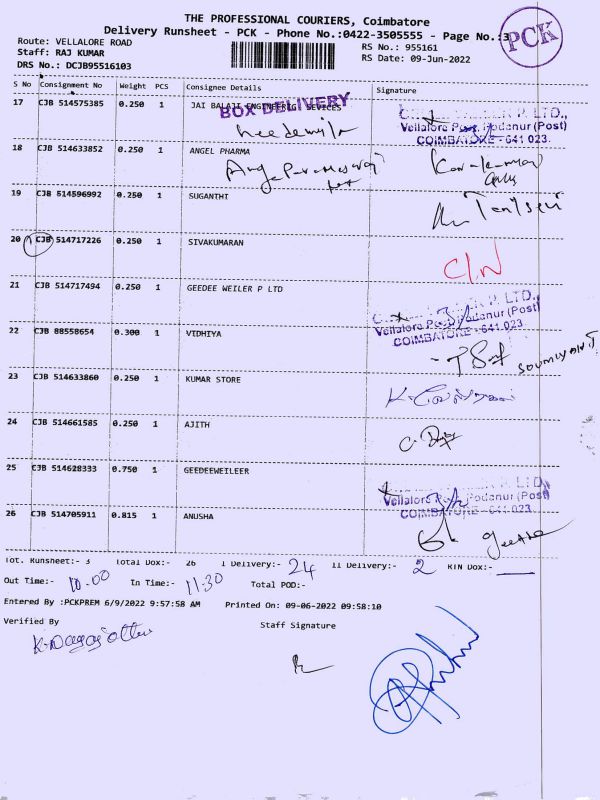 THE PROFESSIONAL COURIERS, Coimbatore
Delivery Runsheet - PCK - Phone No.:0422-3505555 - Page No.:3
PCK
Route: VELLALORE ROAD
Staff: RAJ KUMAR
DRS No.: DCJB95516103
RS No.: 955161
RS Date: 09-Jun-2022
S No Consignment No Weight PCS Consignee Details Signature
17 CJB 514575385 0.250 1 JAI BALAJI ENGINEERIG SEVICES
BOX DELIVERY
P. LTD.,
Vellalore Podanur (Post)
COIMBATORE - 641 023.
18 CJB 514633852 0.250 1 ANGEL PHARMA
19 CJB 514596992 0.250 1 SUGANTHI
20 CJB 514717226 0.250 1 SIVAKUMARAN
C/N
21 CJB 514717494 0.250 1 GEEDEE WEILER P LTD
P. LTD.,
Vellalore Podanur (Post)
COIMBATORE - 641 023.
22 CJB 88558654 0.300 1 VIDHIYA
23 CJB 514633860 0.250 1 KUMAR STORE
24 CJB 514661585 0.250 1 AJITH
25 CJB 514628333 0.750 1 GEEDEEWEILEER
P. LTD.
Vellalore Podanur (Post)
COIMBATORE - 641 023.
26 CJB 514705911 0.815 1 ANUSHA
Geetha
Tot. Runsheet:- 3 Total Dox:- 26 I Delivery:- 24 II Delivery:- 2 RTN Dox:-
Out Time:- 10.00 In Time:- 11:30 Total POD:-
Entered By :PCKPREM 6/9/2022 9:57:58 AM Printed On: 09-06-2022 09:58:10
Verified By Staff Signature